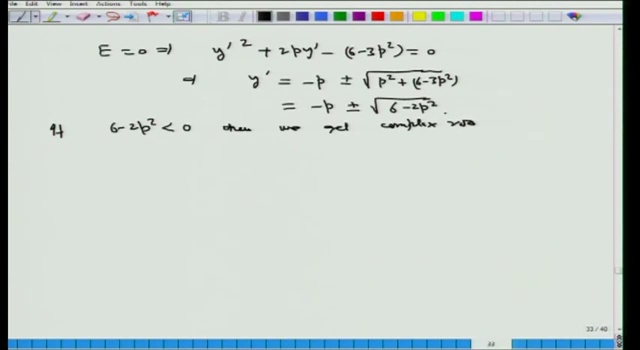 Edit View Insert Actions Tools Help
E = 0 ⇒ y'² + 2py' - (6-3p²) = 0
⇒ y' = -p ± √p² + (6-3p²)
= -p ± √6-2p².
If 6-2p² < 0 then we get complex
33 / 40
33